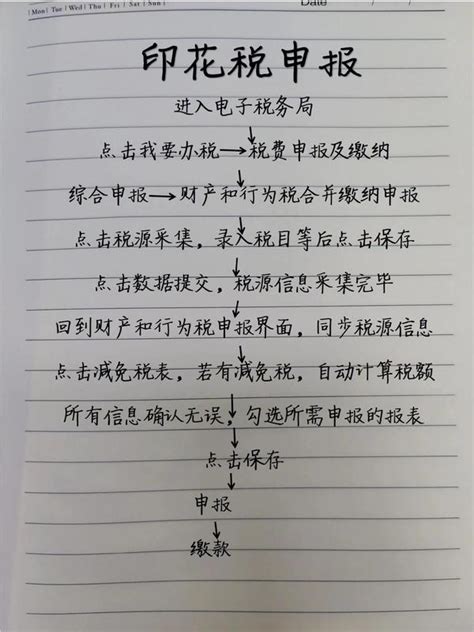 Mon Tue Wed Thu Fri Sat Sun
Date / /
印花税申报
进入电子税务局
↓
点击我要办税→税费申报及缴纳
↓
综合申报→财产和行为税合并缴纳申报
↓
点击税源采集，录入税目等后点击保存
↓
点击数据提交，税源信息采集完毕
↓
回到财产和行为税申报界面，同步税源信息
↓
点击减免税表，若有减免税，自动计算税额
↓
所有信息确认无误，勾选所需申报的报表
↓
点击保存
↓
申报
↓
缴款